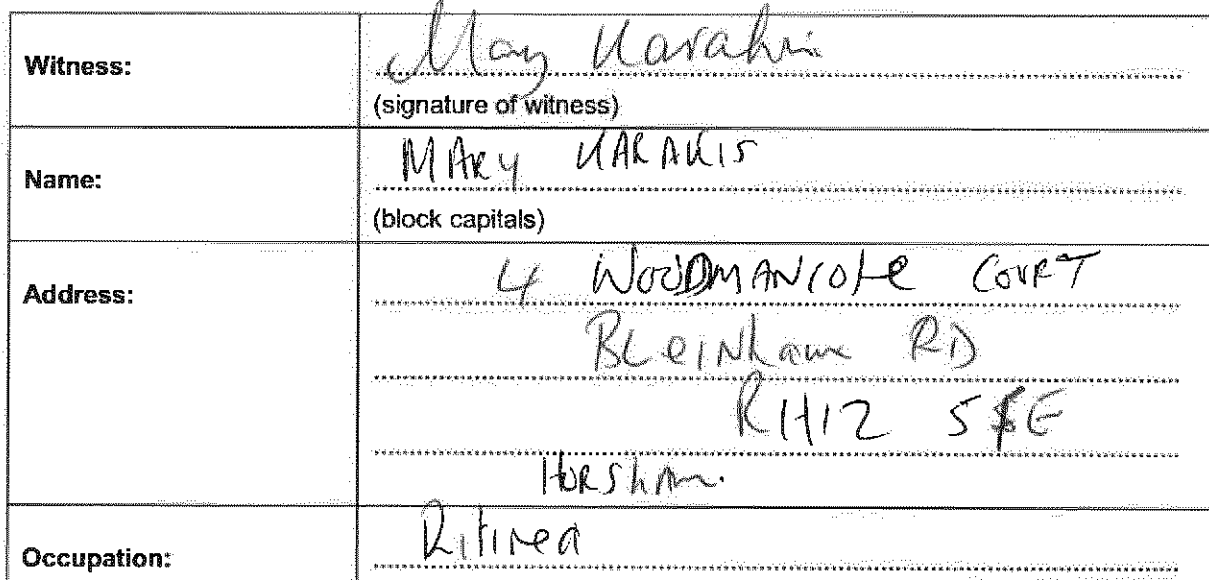 Witness:
Mary Karakis
(signature of witness)
Name:
MARY KARAKIS
(block capitals)
Address:
4 WOODMANCOTE COURT
BLeINhame RD
RH12 5
HORSHAM.
Occupation:
Ritired